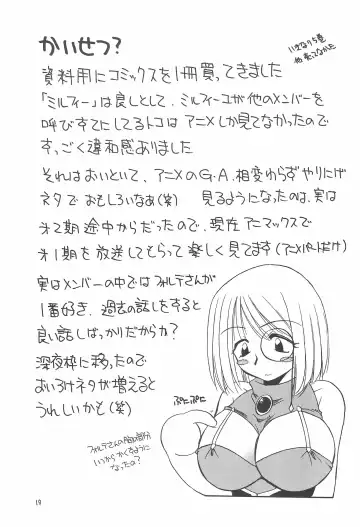 かいせつ？
いきなり5巻
他売ってなかった
資料用にコミックスを1冊買ってきました
「ミルフィー」は良しとして、ミルフィーユが他のメンバーを
呼びすてにしてるトコはアニメしか見てなかったので
すっごく違和感ありました
それはおいといて、アニメのG.A.相変わらずやりにげ
ネタでおもしろいなあ(笑)　見るようになったのは、実は
才2期途中からだったので、現在アニマックスで
才1期を放送してもらって楽しく見てます(アニメパートだけ)
実はメンバーの中ではフォルテさんが
1番好き、過去の話しをすると
良い話しばっかりだからか？
深夜枠に移ったので
おいろけネタが増えると
うれしいかも(笑)
ぷにぷに
フォルテさんの胸の部分
いつからかくすように
なったの？
19